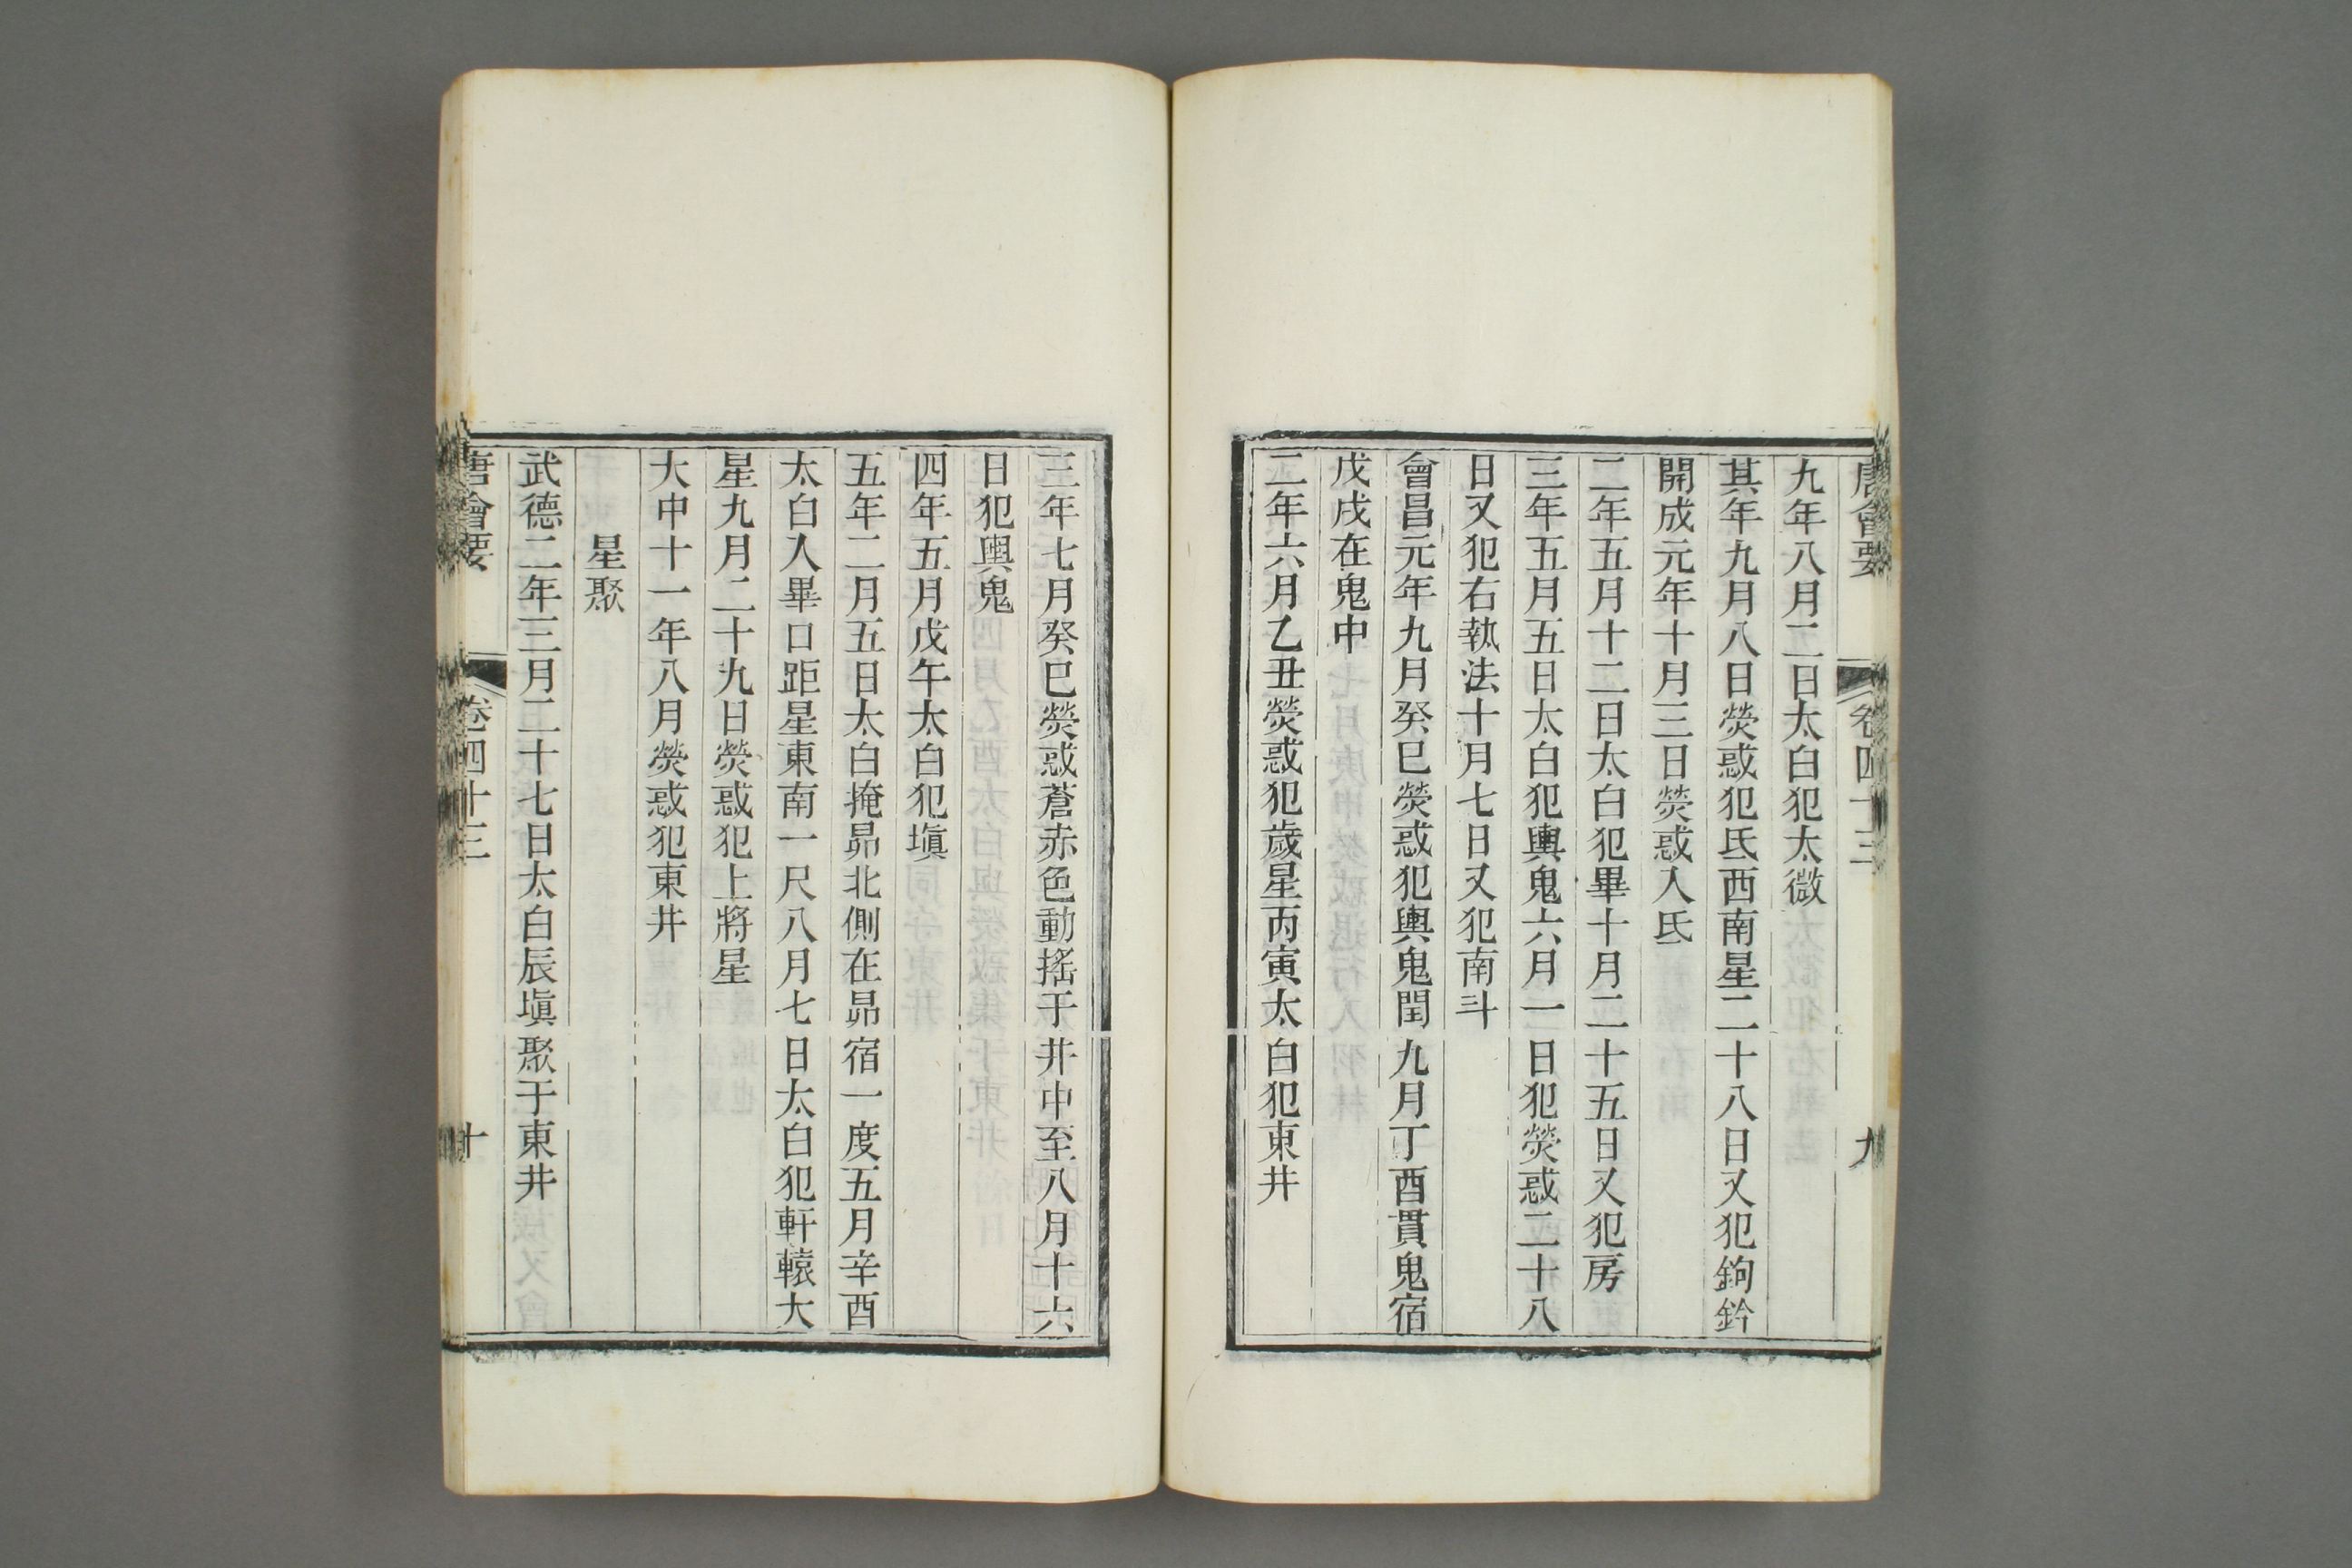 唐會要 卷四十三 九
九年八月二日太白犯太微
其年九月八日熒惑犯氐西南星二十八日又犯鉤鈐
開成元年十月三日熒惑入氐
二年五月十二日太白犯畢十月二十五日又犯房
三年五月五日太白犯輿鬼六月一日犯熒惑二十八
日又犯右執法十月七日又犯南斗
會昌元年九月癸巳熒惑犯輿鬼閏九月丁酉貫鬼宿
戊戌在鬼中
二年六月乙丑熒惑犯歲星丙寅太白犯東井
三年七月癸巳熒惑蒼赤色動搖于井中至八月十六
日犯輿鬼
四年五月戊午太白犯塡
五年二月五日太白掩昴北側在昴宿一度五月辛酉
太白入畢口距星東南一尺八月七日太白犯軒轅大
星九月二十九日熒惑犯上將星
大中十一年八月熒惑犯東井
星聚
武德二年三月二十七日太白辰塡聚于東井
唐會要 卷四十三 十